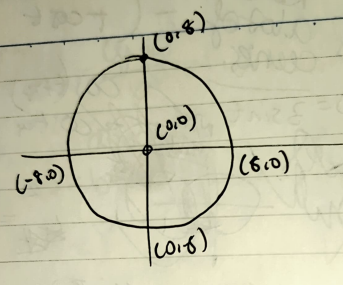 (0,8)
(0,0)
(-8,0)
(8,0)
(0,-8)